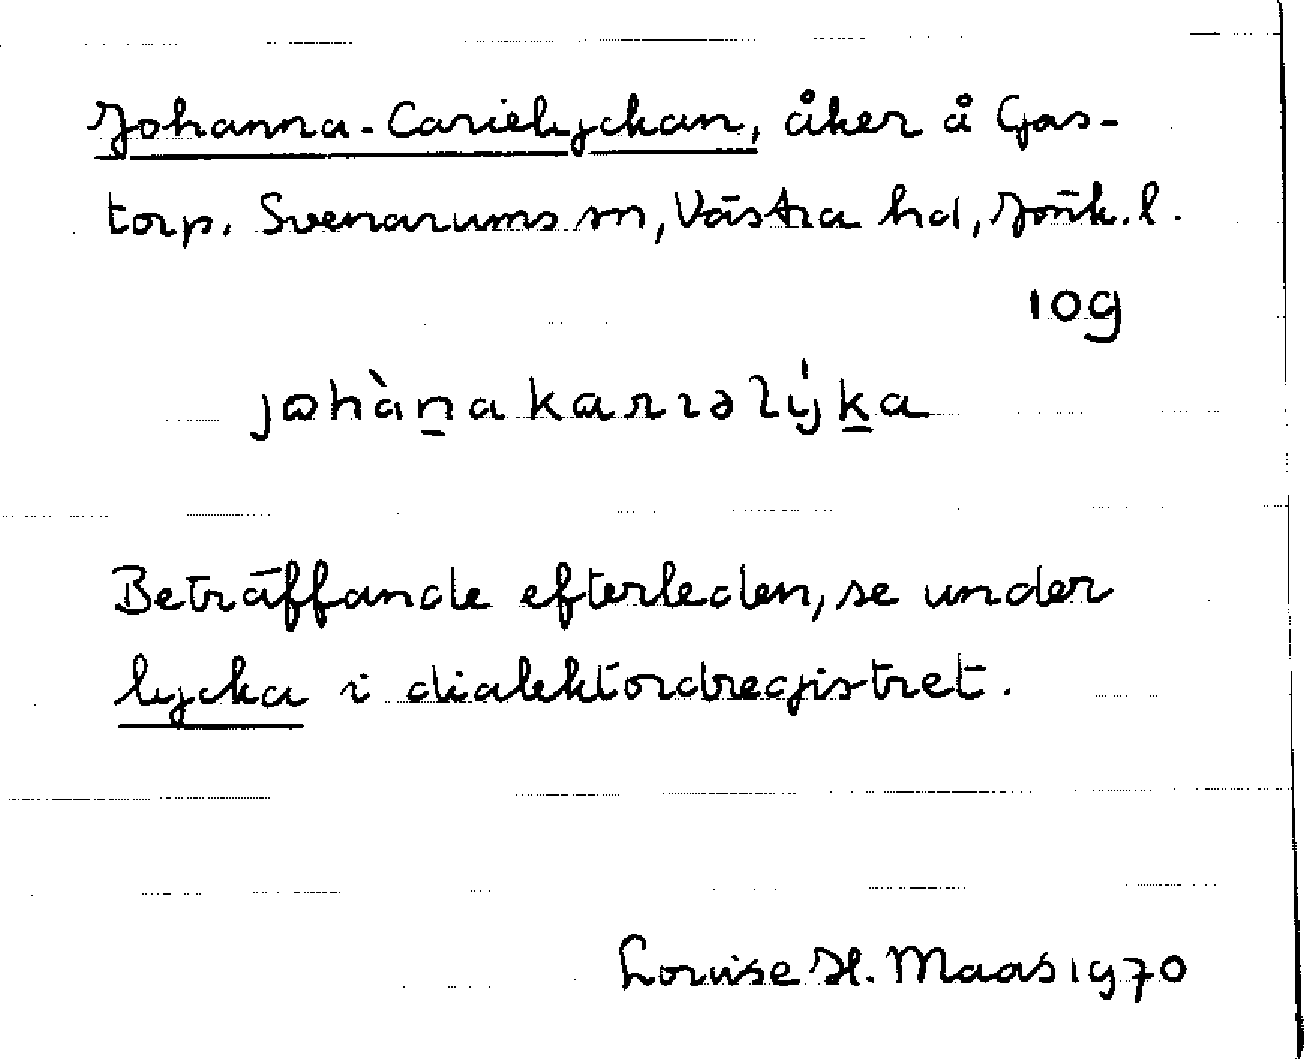 Johanna-Carielyckan, åker å Gas-
torp. Svenarums sn, Västra hd, Jönk. l.
109
johàn̲a karıəlýk̲a
Beträffande efterleden, se under
lycka i dialektordregistret.
Louise H. Maas 1970